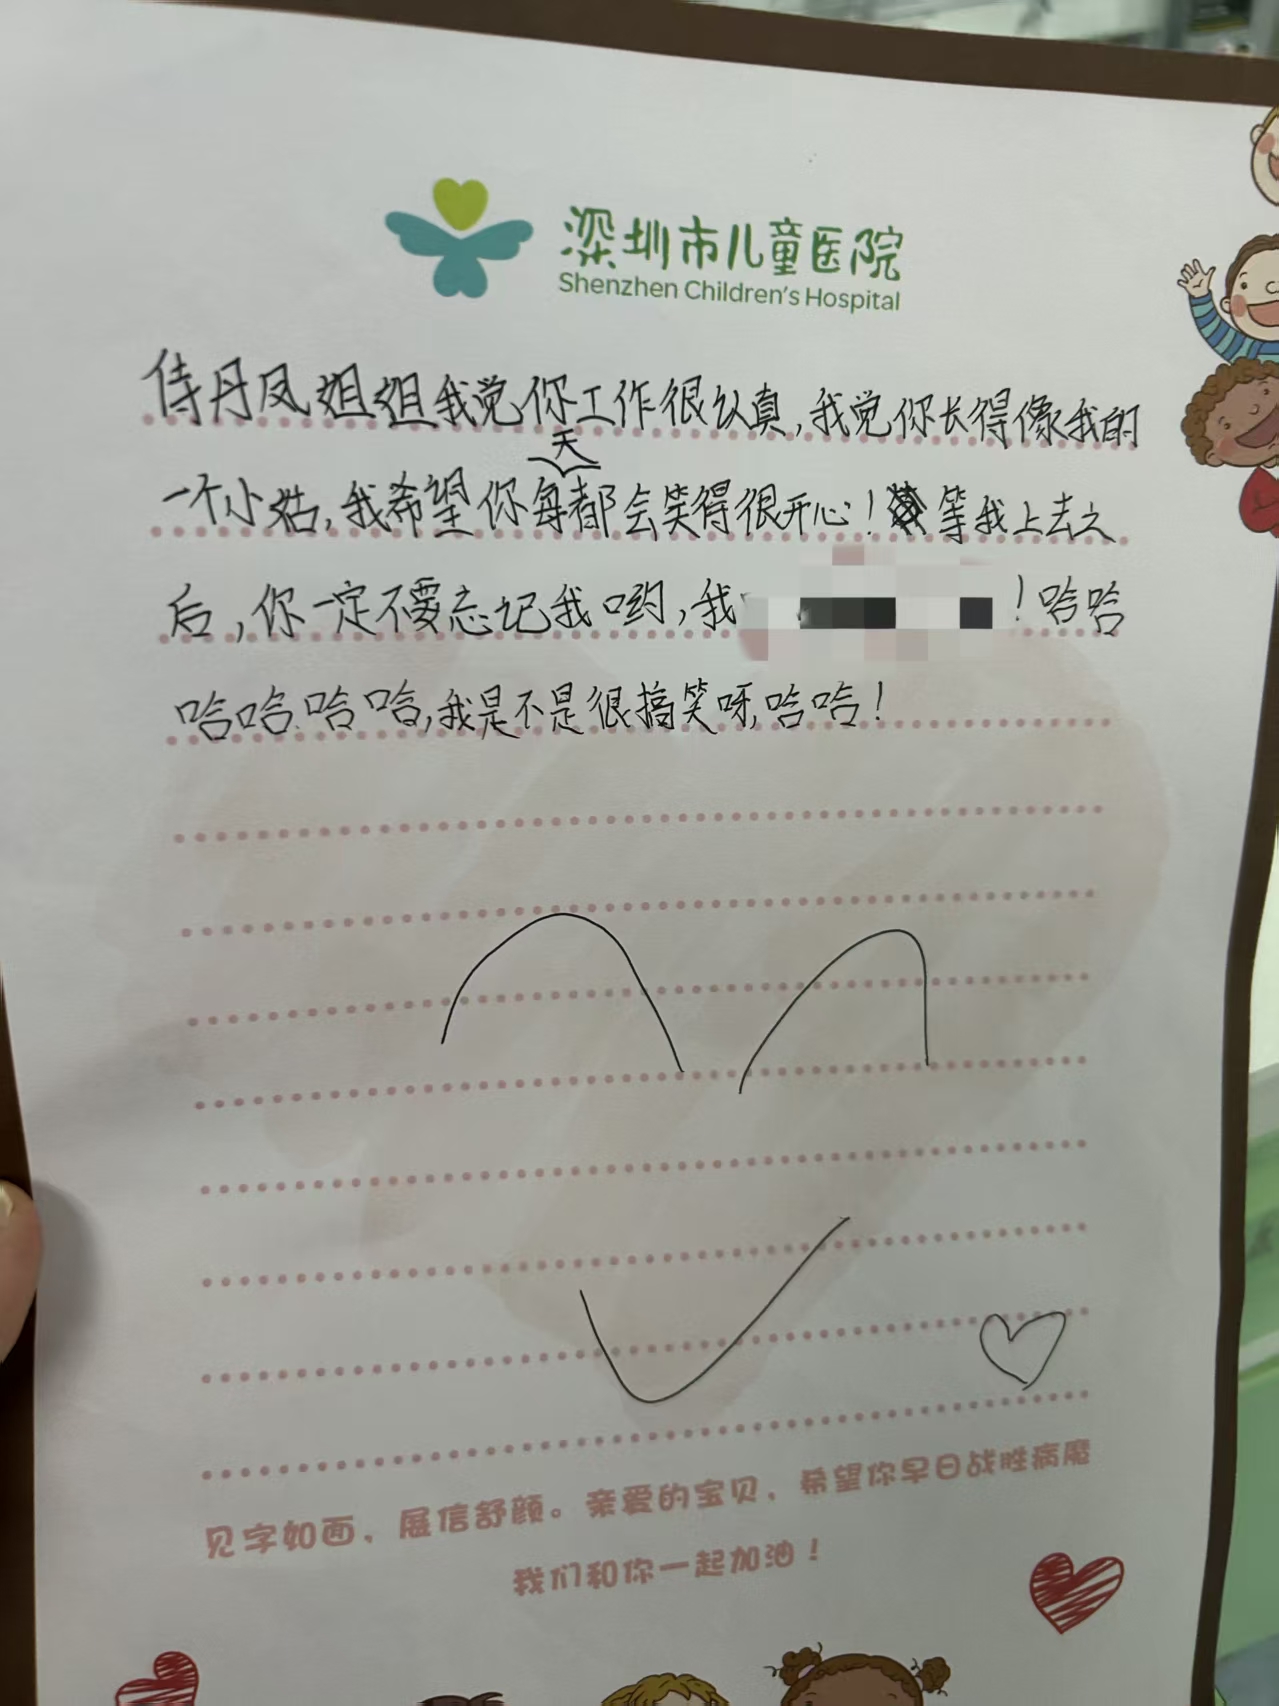 深圳市儿童医院
Shenzhen Children's Hospital
侍丹凤姐姐我觉你工作很认真,我觉你长得像我的
一个小姑,我希望你每天都会笑得很开心!等我上去之
后,你一定不要忘记我哟,我!哈哈
哈哈哈哈,我是不是很搞笑呀,哈哈!
见字如面，展信舒颜。亲爱的宝贝，希望你早日战胜病魔
我们和你一起加油！